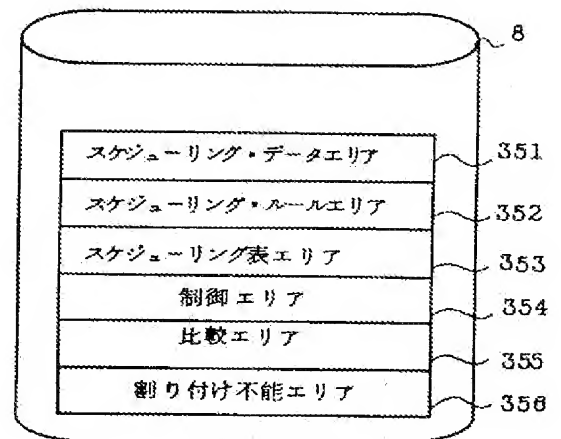 8
スケジューリング・データエリア 351
スケジューリング・ルールエリア 352
スケジューリング表エリア 353
制御エリア 354
比較エリア 355
割り付け不能エリア 356